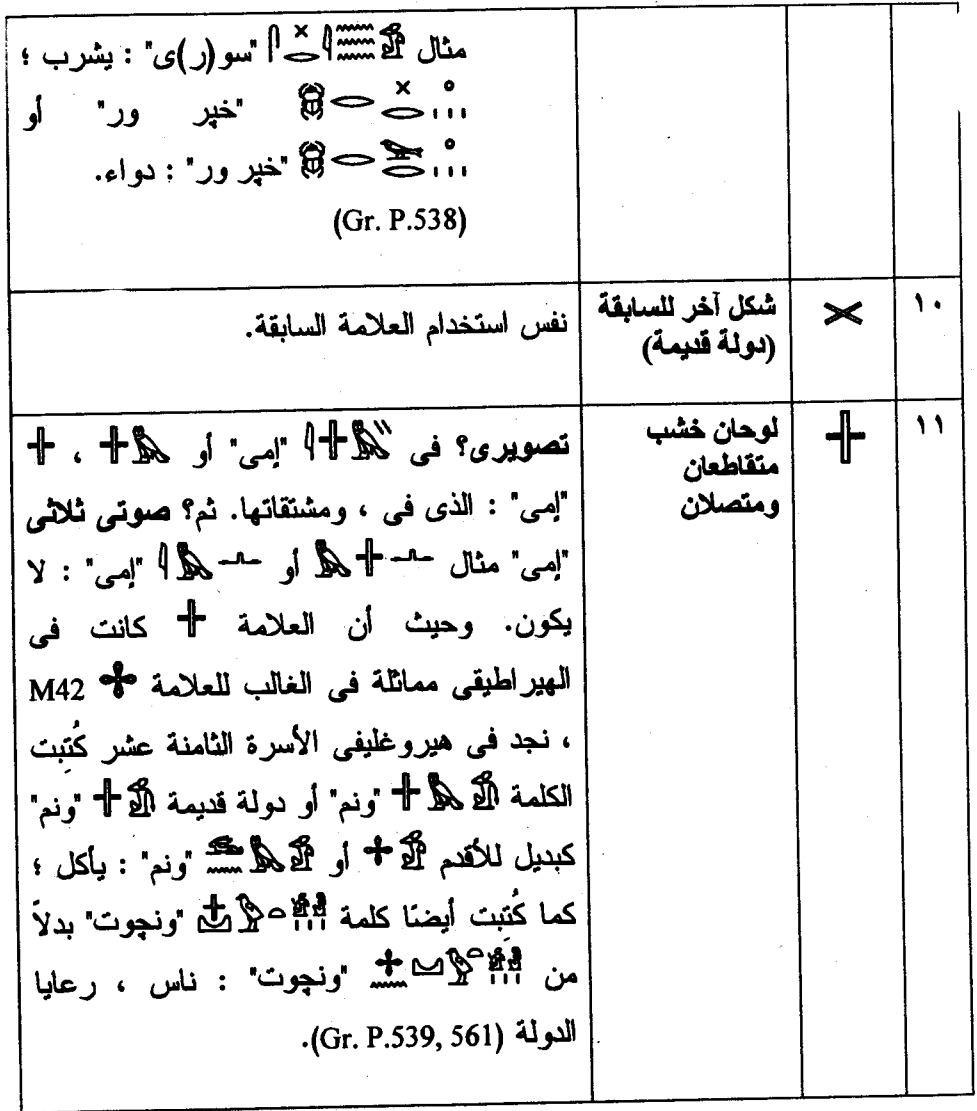 مثال 𓀁𓈗𓇋𓏴𓂋𓋴 "سو(ر)ى" : يشرب ؛
"خپر ور" أو
"خپر ور" : دواء.
(Gr. P.538)
١٠ شكل آخر للسابقة نفس استخدام العلامة السابقة.
(دولة قديمة)
١١ لوحان خشب متقاطعان ومتصلان
تصويرى؟ فى "إمى" أو ،
"إمى" : الذى فى ، ومشتقاتها. ثم؟ صوتى ثلاثى
"إمى" مثال أو "إمى" : لا
يكون. وحيث أن العلامة كانت فى
الهيراطيقى مماثلة فى الغالب للعلامة M42
، نجد فى هيروغليفى الأسرة الثامنة عشر كُتِبت
الكلمة "ونم" أو دولة قديمة "ونم"
كبديل للأقدم أو "ونم" : يأكل ؛
كما كُتبت أيضًا كلمة "ونچوت" بدلاً
من "ونچوت" : ناس ، رعايا
الدولة (Gr. P.539, 561).